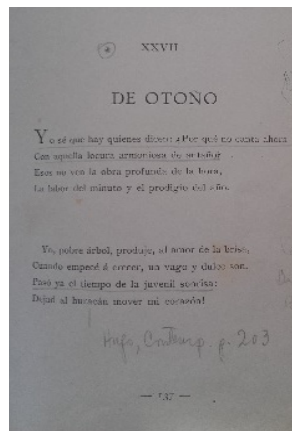 XXVII
DE OTOÑO
Yo sé que hay quienes dicen: ¿Por qué no canta ahora
Con aquella locura armoniosa de antaño?
Esos no ven la obra profunda de la hora,
La labor del minuto y el prodigio del año.
Yo, pobre árbol, produje, al amor de la brisa,
Cuando empecé á crecer, un vago y dulce son.
Pasó ya el tiempo de la juvenil sonrisa:
Dejad al huracán mover mi corazón!
Hugo, Contemp. p. 203
— 137 —